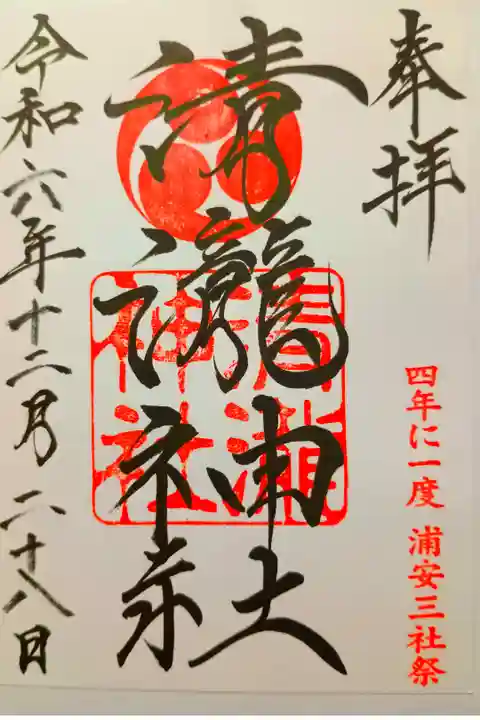 奉拝
四年に一度 浦安三社祭
清瀧神社
清瀧
神社
令和六年十二月二十八日